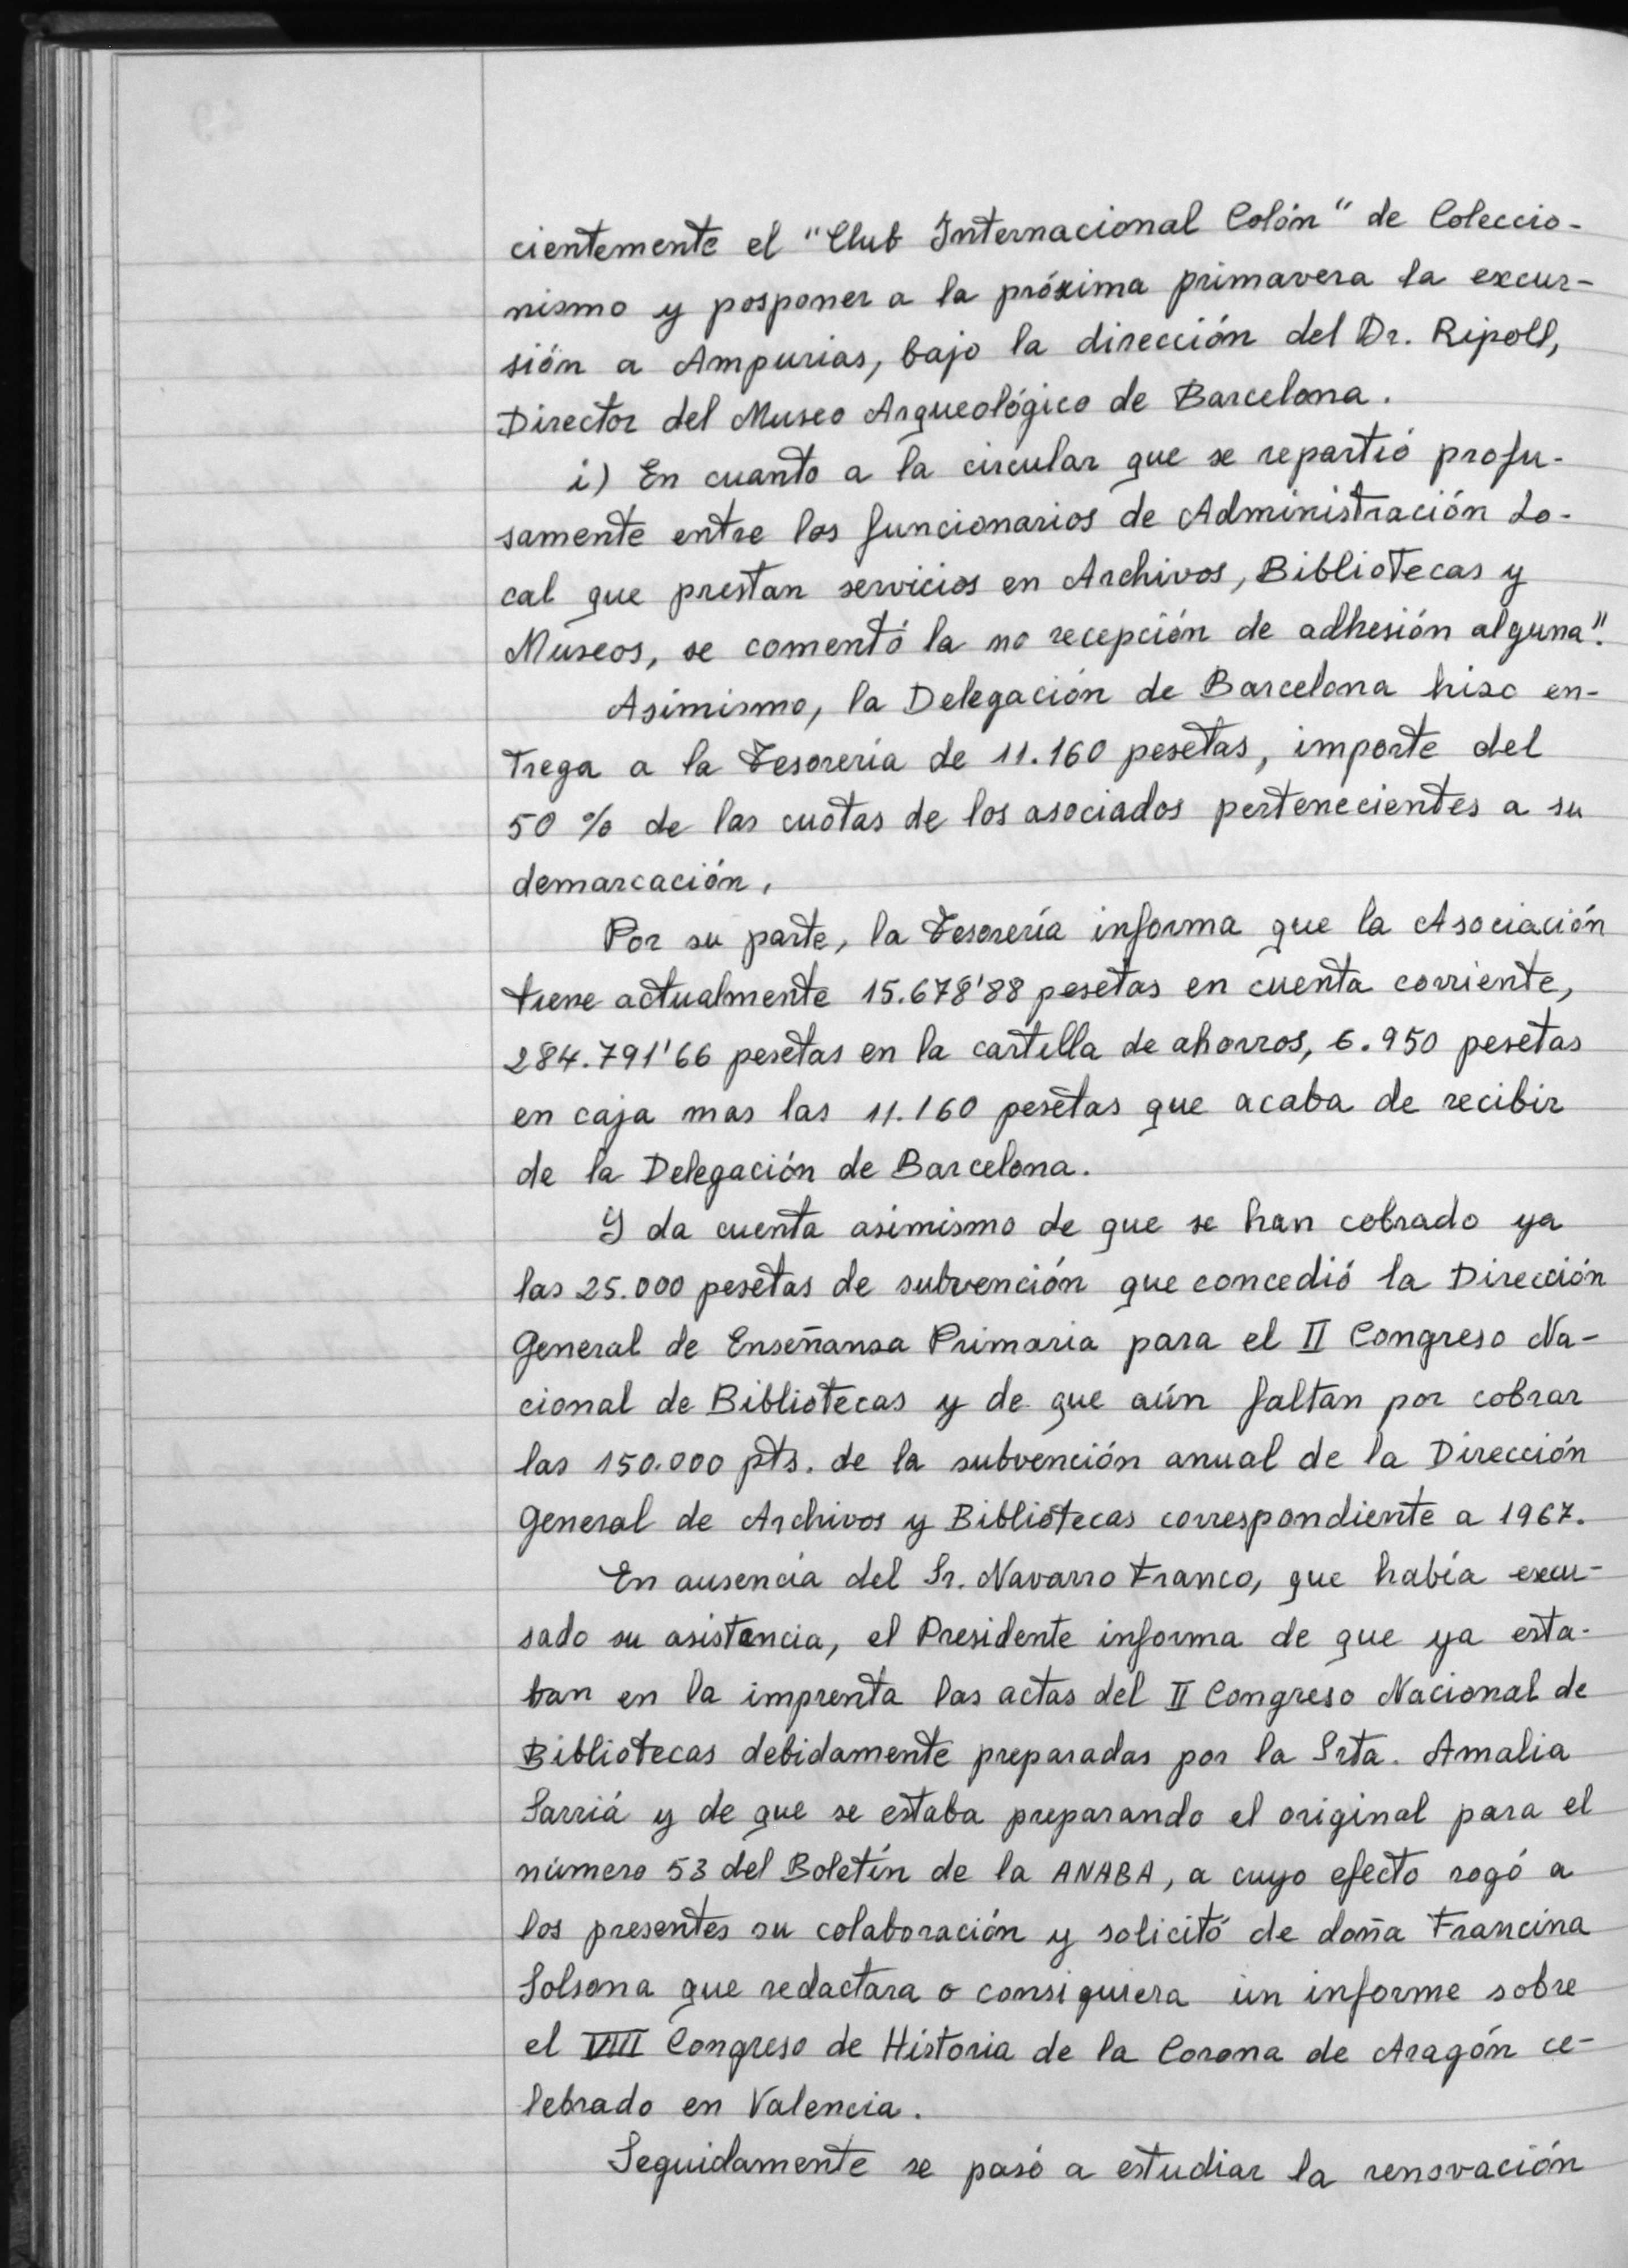 cientemente el "Club Internacional Colón" de Coleccio-
nismo y posponer a la próxima primavera la excur-
sión a Ampurias, bajo la dirección del Dr. Ripoll,
Director del Museo Arqueológico de Barcelona.
i) En cuanto a la circular que se repartió profu-
samente entre los funcionarios de Administración Lo-
cal que prestan servicios en Archivos, Bibliotecas y
Museos, se comentó la no recepción de adhesión alguna".
Asimismo, la Delegación de Barcelona hizo en-
trega a la Tesorería de 11.160 pesetas, importe del
50 % de las cuotas de los asociados pertenecientes a su
demarcación.
Por su parte, la Tesorería informa que la Asociación
tiene actualmente 15.678'88 pesetas en cuenta corriente,
284.791'66 pesetas en la cartilla de ahorros, 6.950 pesetas
en caja mas las 11.160 pesetas que acaba de recibir
de la Delegación de Barcelona.
Y da cuenta asimismo de que se han cobrado ya
las 25.000 pesetas de subvención que concedió la Dirección
General de Enseñanza Primaria para el II Congreso Na-
cional de Bibliotecas y de que aún faltan por cobrar
las 150.000 pts. de la subvención anual de la Dirección
General de Archivos y Bibliotecas correspondiente a 1967.
En ausencia del Sr. Navarro Franco, que había excu-
sado su asistencia, el Presidente informa de que ya esta-
ban en la imprenta las actas del II Congreso Nacional de
Bibliotecas debidamente preparadas por la Srta. Amalia
Sarriá y de que se estaba preparando el original para el
número 53 del Boletín de la ANABA, a cuyo efecto rogó a
los presentes su colaboración y solicitó de doña Francina
Solsona que redactara o consiguiera un informe sobre
el VIII Congreso de Historia de la Corona de Aragón ce-
lebrado en Valencia.
Seguidamente se pasó a estudiar la renovación